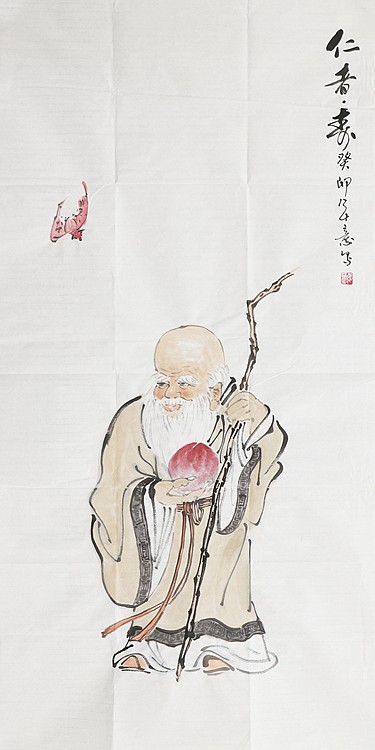 仁者寿癸卯年